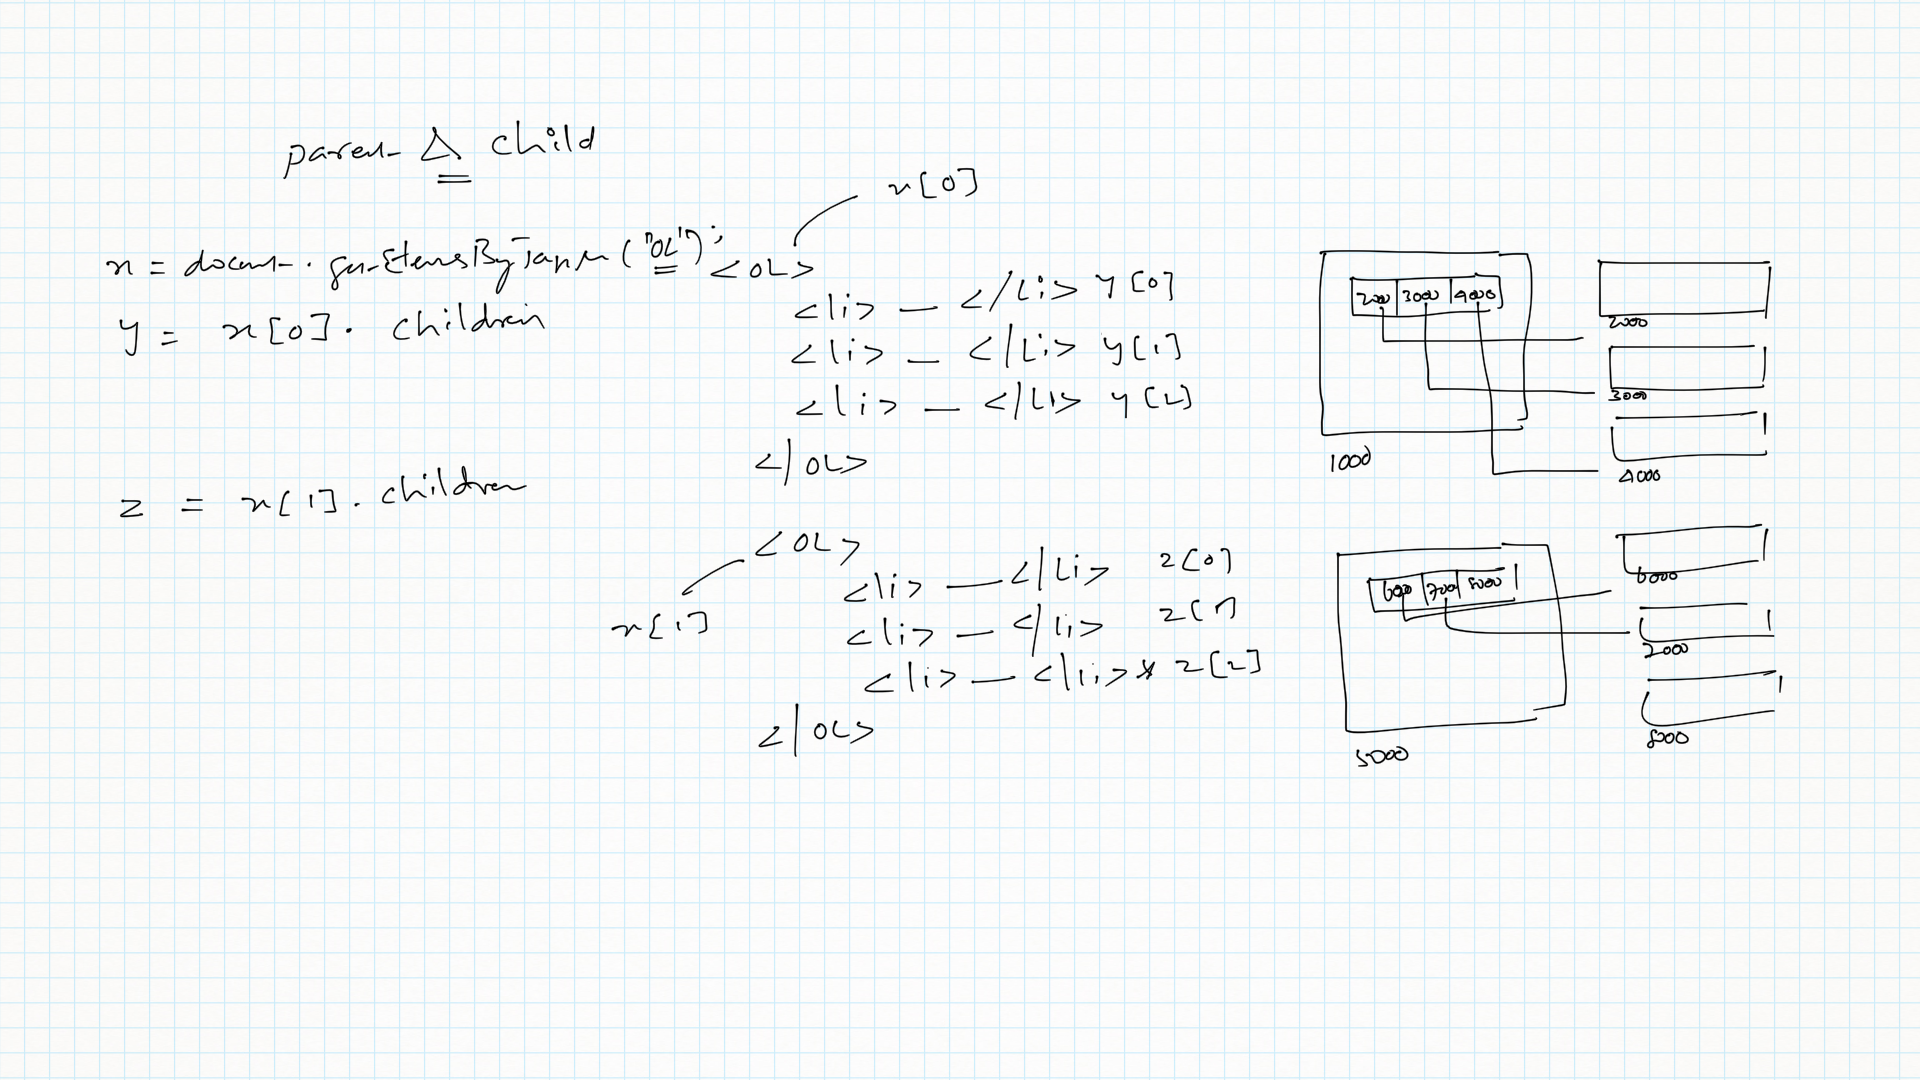 paren- Δ child
x[0]
x = documn- . gen-ElemsByTagNm ("OL");
y = x[0]. children
z = x[1]. children
<OL>
<li> — </Li> y[0]
<li> — </Li> y[1]
<li> — </Li> y[2]
</OL>
<OL>
x[1]
<li> — </Li> z[0]
<li> — </li> z[1]
<li> — </li> z[2]
</OL>
2000 3000 4000
1000
2000
3000
4000
6000 7000 8000
5000
6000
7000
8000